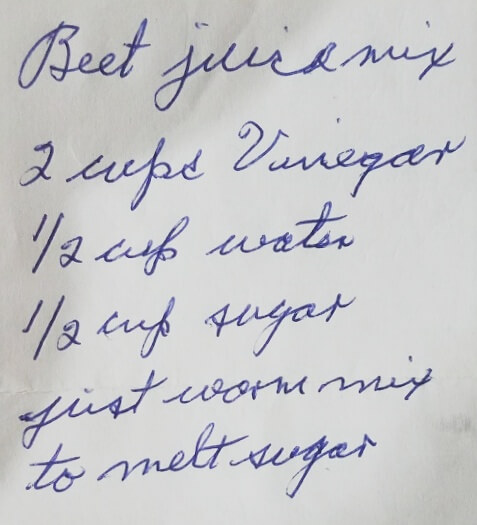 Beet juice mix
2 cups Vinegar
1/2 cup water
1/2 cup sugar
just warm mix
to melt sugar